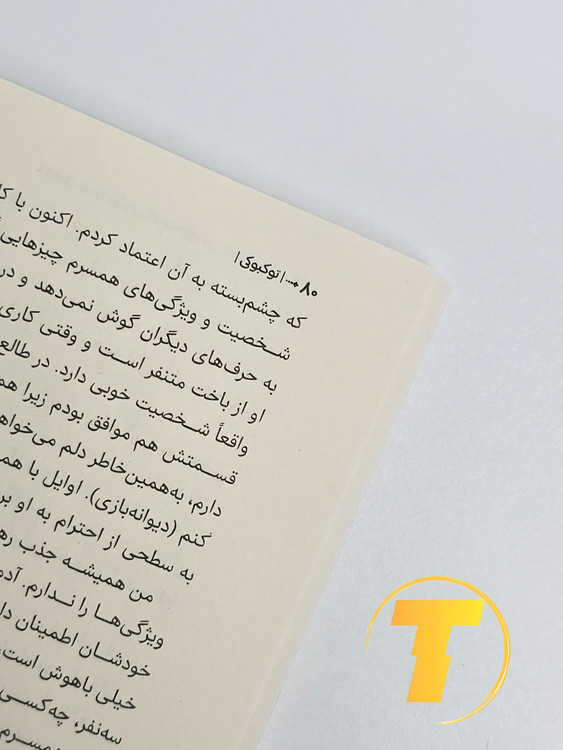 ۸۰ ...| توکیوکی |
که چشم‌بسته به آن اعتماد کردم. اکنون با
شخصیت و ویژگی‌های همسرم چیزهایی
به حرف‌های دیگران گوش نمی‌دهد و در
او از باخت متنفر است و وقتی کاری
واقعاً شخصیت خوبی دارد. در طالع
قسمتش هم موافق بودم زیرا
دارم، به‌همین‌خاطر دلم
کنم (دیوانه‌بازی). اوایل با
به سطحی از احترام به او
من همیشه جذب
ویژگی‌ها را ندارم.
خودشان اطمینان
خیلی باهوش است
سه‌نفر، چه‌کسی
T